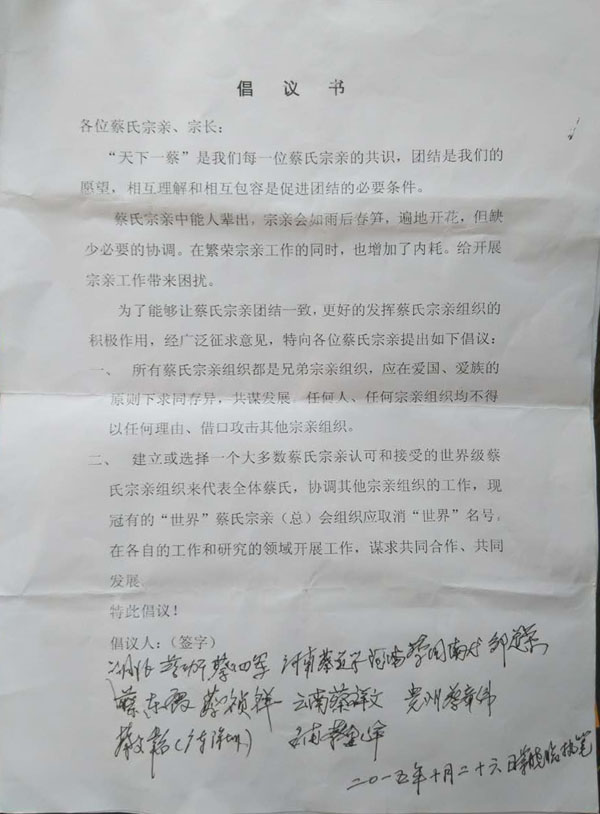 倡 议 书
各位蔡氏宗亲、宗长：
“天下一蔡”是我们每一位蔡氏宗亲的共识，团结是我们的
愿望，相互理解和相互包容是促进团结的必要条件。
蔡氏宗亲中能人辈出，宗亲会如雨后春笋，遍地开花，但缺
少必要的协调。在繁荣宗亲工作的同时，也增加了内耗。给开展
宗亲工作带来困扰。
为了能够让蔡氏宗亲团结一致，更好的发挥蔡氏宗亲组织的
积极作用，经广泛征求意见，特向各位蔡氏宗亲提出如下倡议：
一、 所有蔡氏宗亲组织都是兄弟宗亲组织，应在爱国、爱族的
原则下求同存异，共谋发展。任何人、任何宗亲组织均不得
以任何理由、借口攻击其他宗亲组织。
二、 建立或选择一个大多数蔡氏宗亲认可和接受的世界级蔡
氏宗亲组织来代表全体蔡氏，协调其他宗亲组织的工作，现
冠有的“世界”蔡氏宗亲（总）会组织应取消“世界”名号。
在各自的工作和研究的领域开展工作，谋求共同合作、共同
发展。
特此倡议！
倡议人：（签字）
蔡四军 河南蔡 河南蔡
蔡东霞 蔡祯祥 云南蔡 贵州蔡章伟
蔡文
二〇一五年十月二十六日 执笔